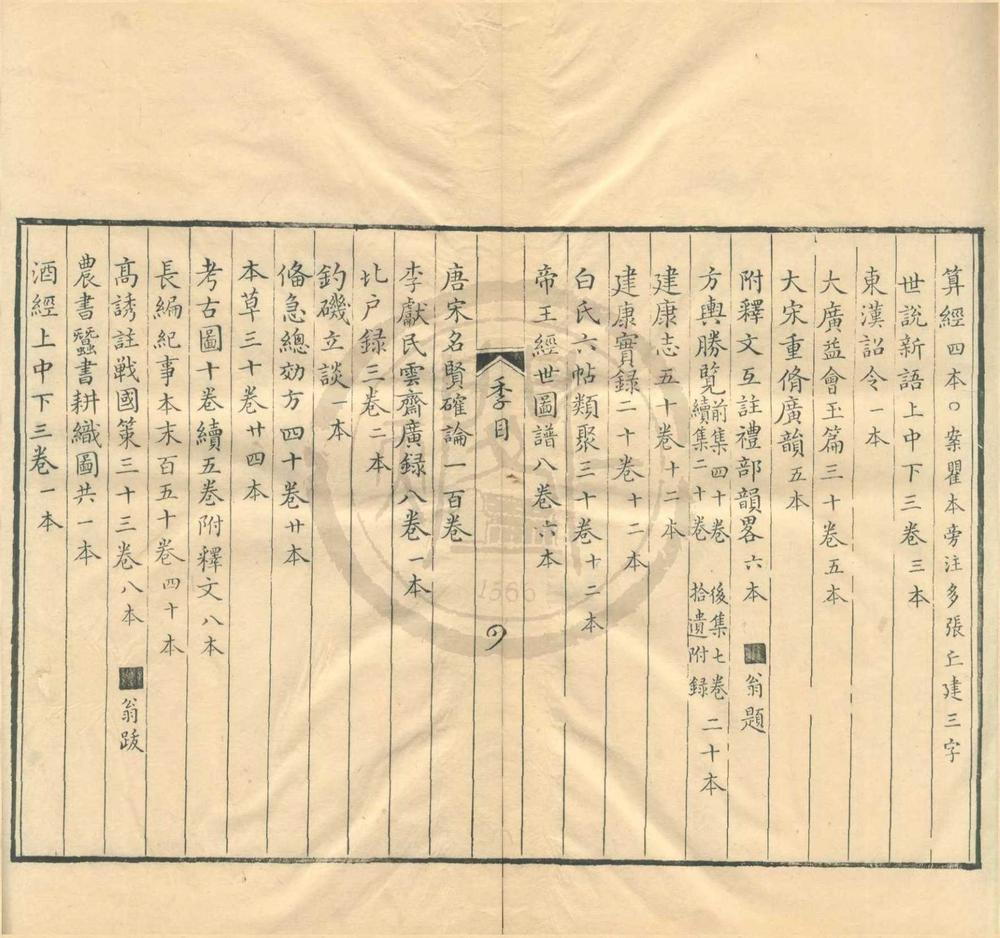 算經四本○案瞿本旁注多張丘建三字
世說新語上中下三卷三本
東漢詔令一本
大廣益會玉篇三十卷五本
大宋重脩廣韻五本
附釋文互註禮部韻畧六本 翁題
方輿勝覽前集四十卷 後集七卷 續集二十卷 拾遺附録 二十本
建康志五十卷十二本
建康實録二十卷十二本
白氏六帖類聚三十卷十二本
帝王經世圖譜八卷六本
季目
唐宋名賢確論一百卷
李獻民雲齋廣録八卷一本
北户録三卷二本
釣磯立談一本
偹急總効方四十卷廿本
本草三十卷廿四本
考古圖十卷續五卷附釋文八本
長編紀事本末百五十卷四十本
高誘註戰國策三十三卷八本 翁跋
農書蠶書耕織圖共一本
酒經上中下三卷一本
1566